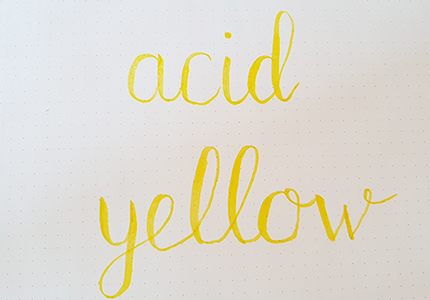 acid
yellow